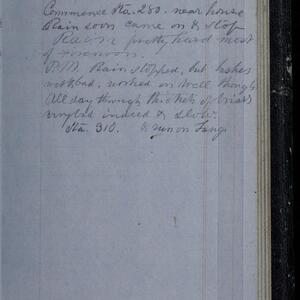 Commence Sta. 280. near house
Rain soon came on & stop
Rain pretty hard most
of forenoon.
P.M. Rain stopped, but bushes
wet & bad, worked on well though
All day through thickets of briars
indeed & slow.
Sta. 310. & run on